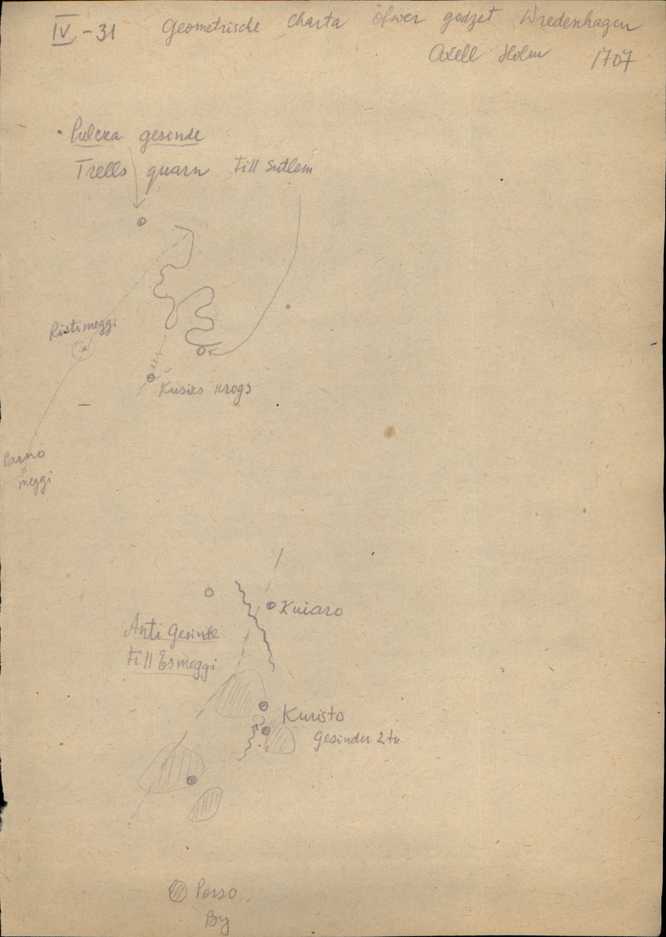 IV-31 Geometrische Charta öfwer godzet Wredenhagen
Axell Holm 1707
Pulcka gesinde
Trells quarn till Sutlem
Ristimeggi
Kusiks krogz
Parno
meggi
Kuiaro
Anti Gesinde
till Esmeggi
Kuristo
Gesinder 2 tu
Posso
By